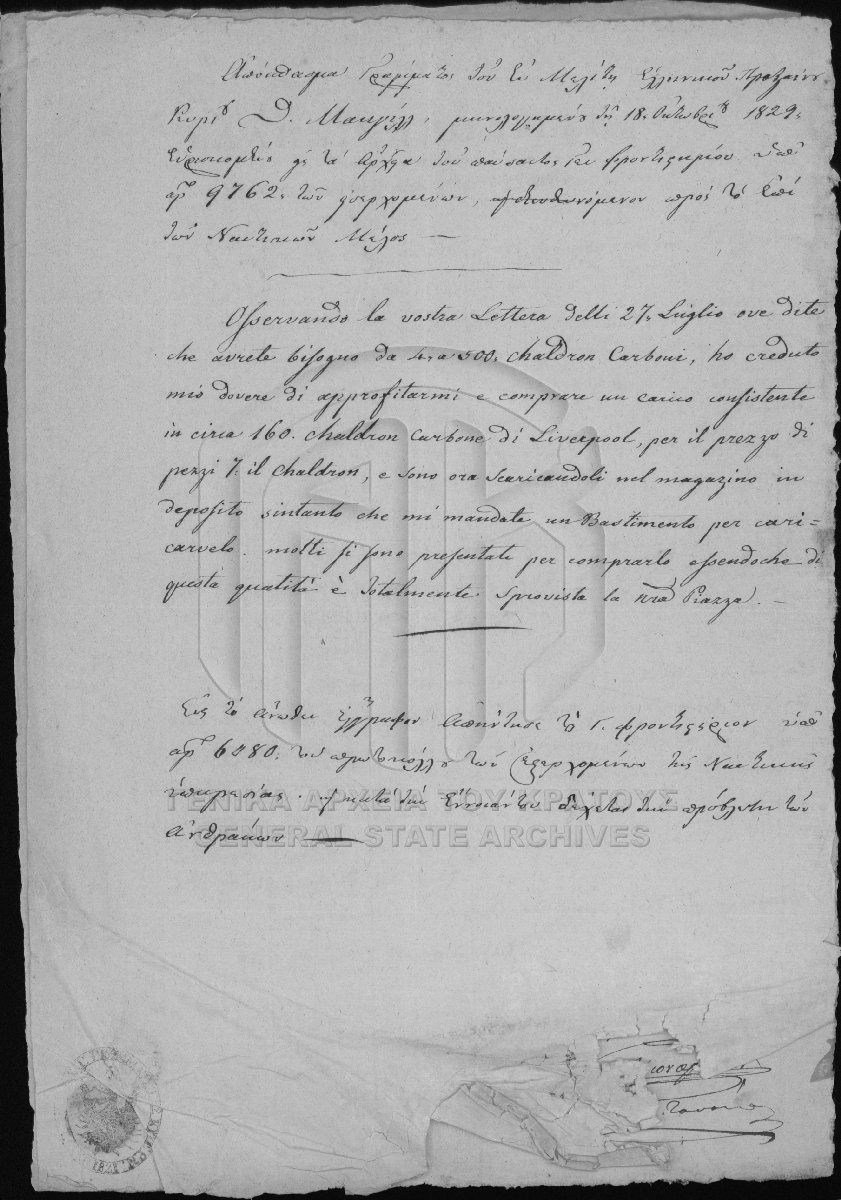 Ἀπόσπασμα Γράμματος τοῦ ἐν Μελίτῃ Ἑλληνικοῦ Προξένου
Κυρίου Δ. Μακγίλλ, μηνολογημένου τῇ 18. Ὀκτωβρίου 1829,
εὑρισκομένου εἰς τὰ Ἀρχεῖα τοῦ παύσαντος Γεν. Φροντιστηρίου ὑπ'
ἀρ. 9762, τῶν εἰσερχομένων, διευθυνόμενον πρὸς τὸ Ἐπὶ
τῶν Ναυτικῶν Μέλος —
Osservando la vostra Lettera delli 27, Luglio ove dite
che avrete bisogno da 4, a 500, chaldron Carboni, ho creduto
mio dovere di approfitarmi e comprare un carico consistente
in circa 160. chaldron Carbone di Liverpool, per il prezzo di
pezzi 7. il Chaldron, e sono ora scaricandoli nel magazino in
deposito sintanto che mi mandate un Bastimento per cari=
carvelo. molti si sono presentati per comprarlo essendoche di
questa qualità è totalmente sprovista la nra Piazza. —
Εἰς τὸ ἄνωθι ἔγγραφον ἀπήντησε τὸ Γ. Φροντιστήριον ὑπ'
ἀρ. 6080, τοῦ πρωτοκόλλου τῶν ἐξερχομένων τῆς Ναυτικῆς
ὑπηρεσίας. κατὰ τὴν ἔννοιαν του δέχεται τὴν πρόβλεψιν τῶν
ἀνθράκων —
ΓΕΝΙΚΑ ΑΡΧΕΙΑ ΤΟΥ ΚΡΑΤΟΥΣ
GENERAL STATE ARCHIVES